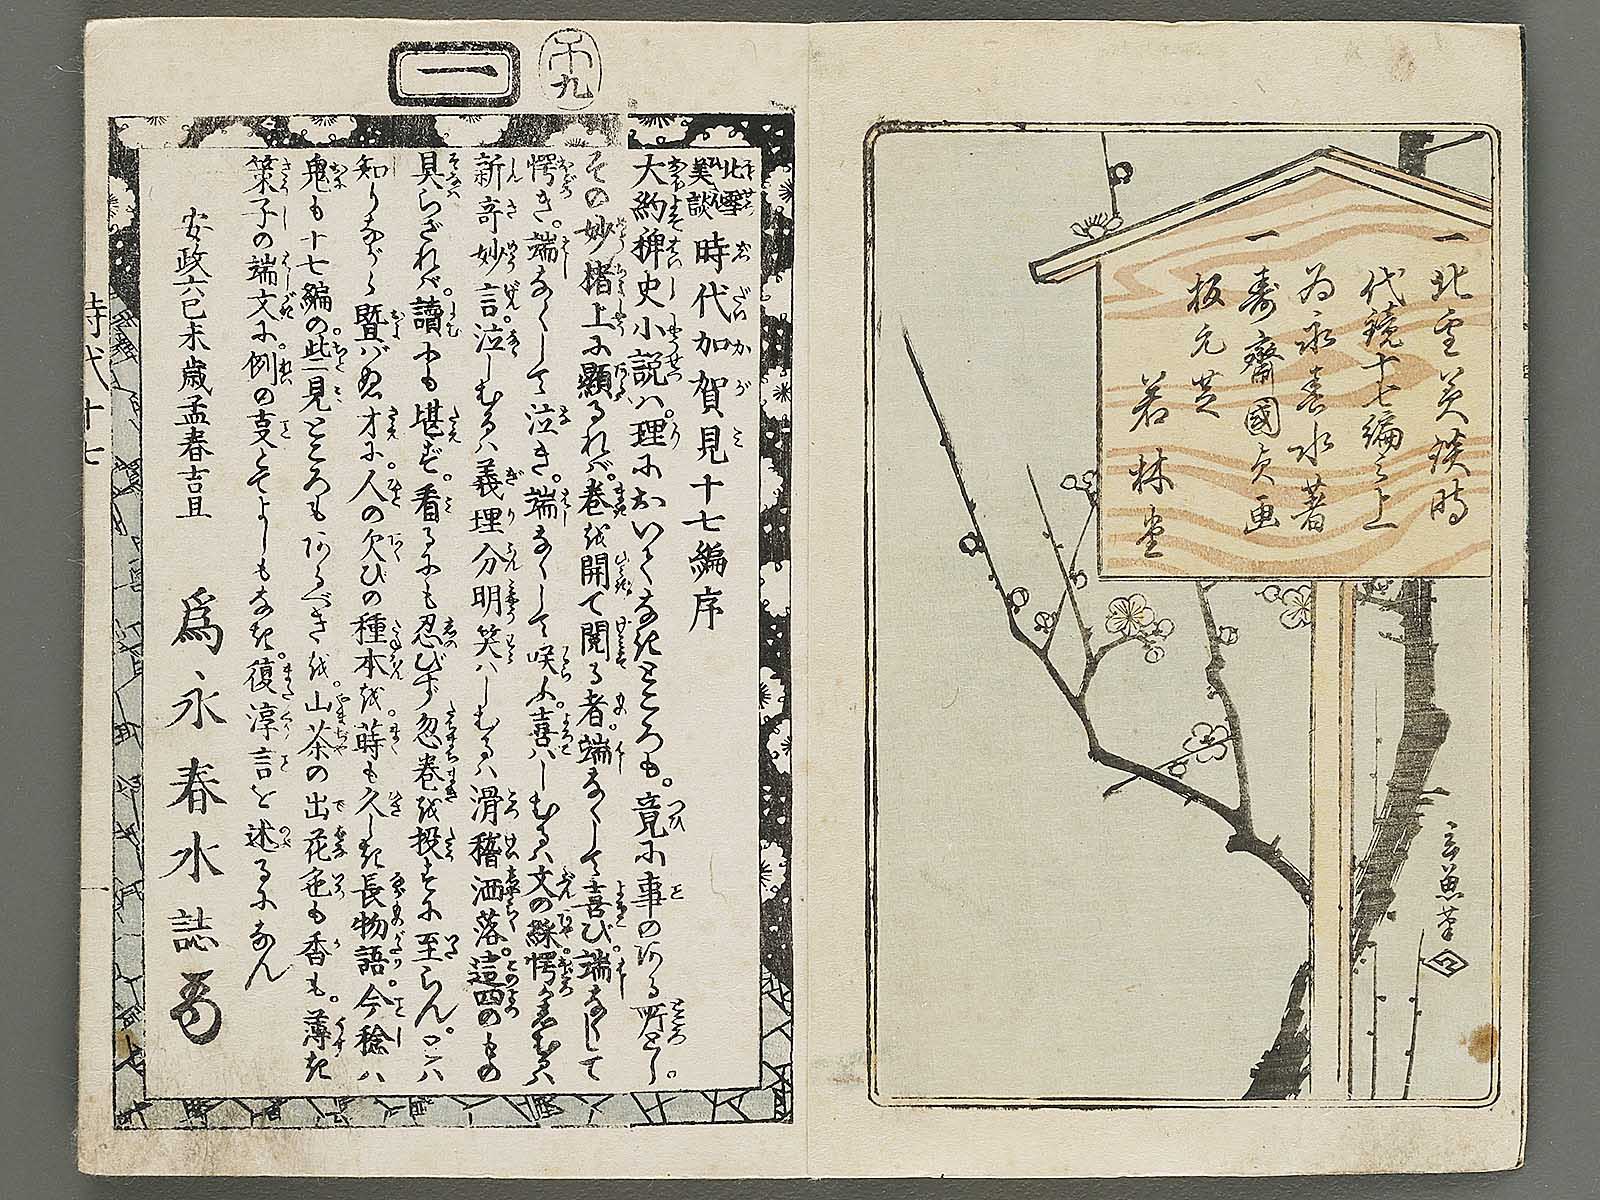 一 北雪美談時
代鏡十七編之上
為永春水著
一 壽齋國貞画
板元 芝
若林堂
玄魚筆
十九
一
北雪美談 時代加賀見十七編序
大約稗史小説ハ。理においてなきところも。竟に事のある所とし。
その妙楮上に顯るれバ。巻を開て閲る者。端なくして喜び端なくして
愕き。端なくして泣き。端なくして咲ふ。喜バしむるハ文の綵愕かしむるハ
新奇妙言泣しむるハ義理分明笑ハしむるハ滑稽洒落。這四のもの
具らざれバ。讀にも堪ず。看るにも忍びず忽巻を投すに至らん。
知りながら暨バぬ才に。人の欠びの種本を。蒔も久しき長物語。今稔ハ
鬼も十七編の些見ところもあるべきを山茶の出花色も香も。薄き
策子の端文に。例の事とてよしもなき。復淳言を述るになん
安政六己未歳孟春吉旦
為永春水誌
時代 十七
一